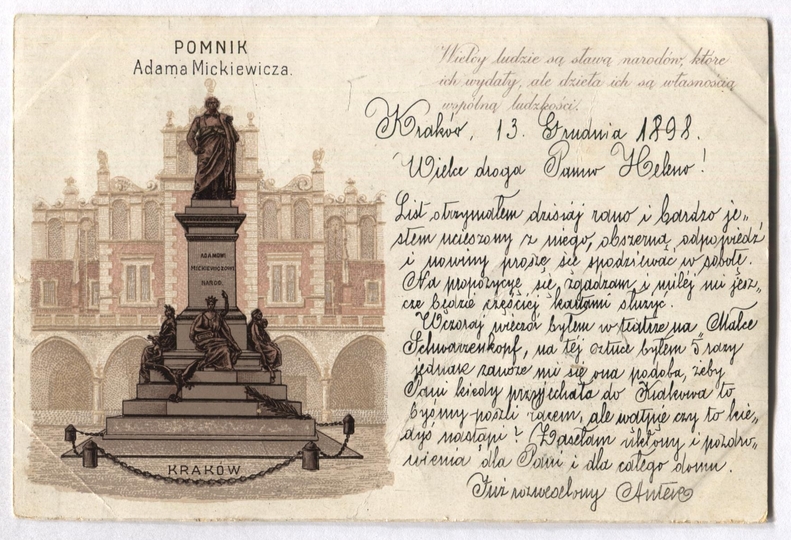 POMNIK
Adama Mickiewicza.
Wielcy ludzie są sławą narodów, które
ich wydały, ale dzieła ich są własnością
wspólną ludzkości.
Kraków, 13. Grudnia 1898.
Wielce droga Panno Heleno!
List otrzymałem dzisiaj rano i bardzo je„
stem ucieszony z niego, obszerną odpowiedź
i nowiny proszę się spodziewać w sobotę.
Na propozycye się zgadzam i milej mi jesz„
cze będzie częściej kartami służyć.
Wczoraj wieczór byłem w teatrze na „Małce
Schwarzenkopf, na tej sztuce byłem 5 razy
jednak zawsze mi się ona podoba, żeby
Pani kiedy przyjechała do Krakowa to
byśmy poszli razem, ale wątpię czy to kie„
dyś nastąpi? Zasełam ukłony i pozdro„
wienia dla Pani i dla całego domu.
Już rozweselony Antek
ADAMOWI
MICKIEWICZOWI
NARÓD.
KRAKÓW